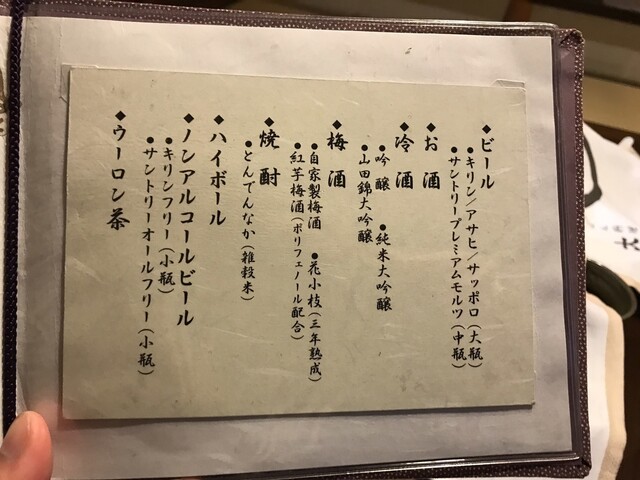 ◆ビール
●キリン／アサヒ／サッポロ（大瓶）
●サントリープレミアムモルツ（中瓶）
◆お酒
◆冷酒
●吟醸 ●純米大吟醸
●山田錦大吟醸
◆梅酒
●自家製梅酒 ●花小枝（三年熟成）
●紅芋梅酒（ポリフェノール配合）
◆焼酎
●とんでんなか（雑穀米）
◆ハイボール
◆ノンアルコールビール
●キリンフリー（小瓶）
●サントリーオールフリー（小瓶）
◆ウーロン茶